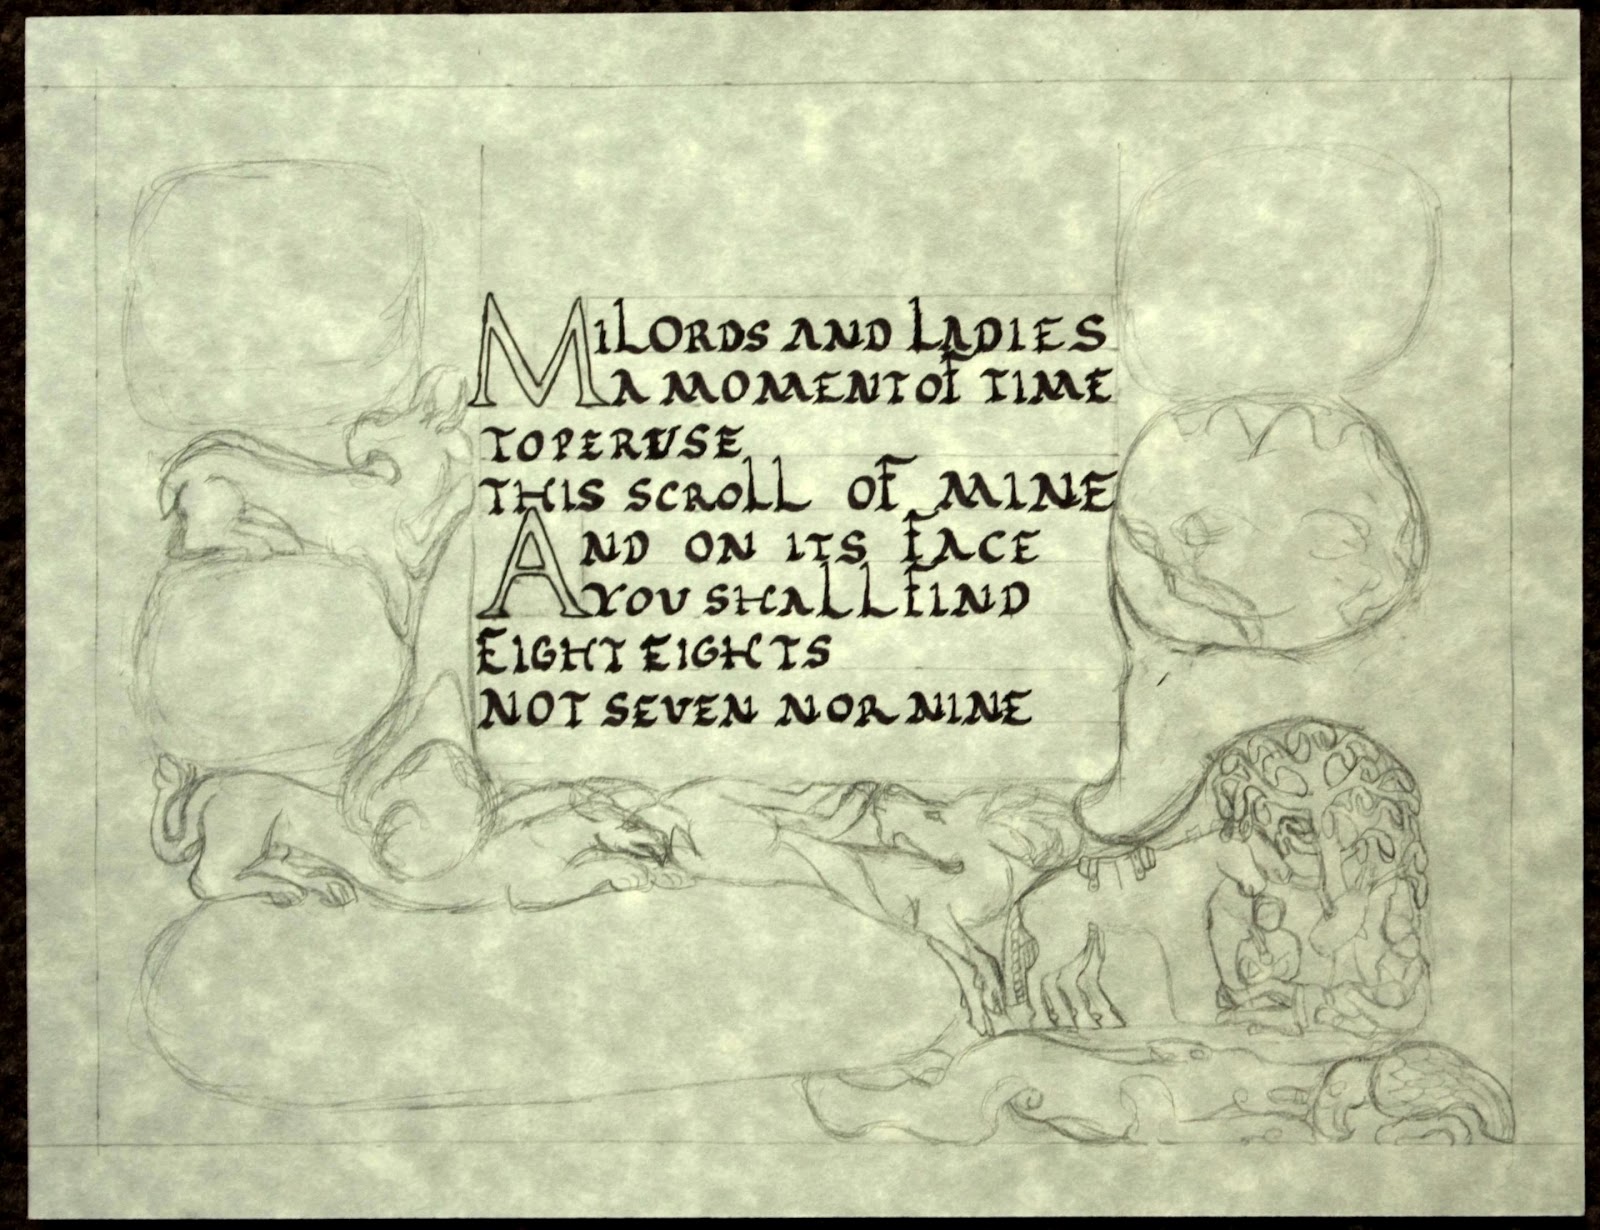 MiLORDS AND LADIES
A MOMENT OF TIME
TO PERUSE
THIS SCROLL OF MINE
AND ON ITS FACE
YOU SHALL FIND
EIGHT EIGHTS
NOT SEVEN NOR NINE